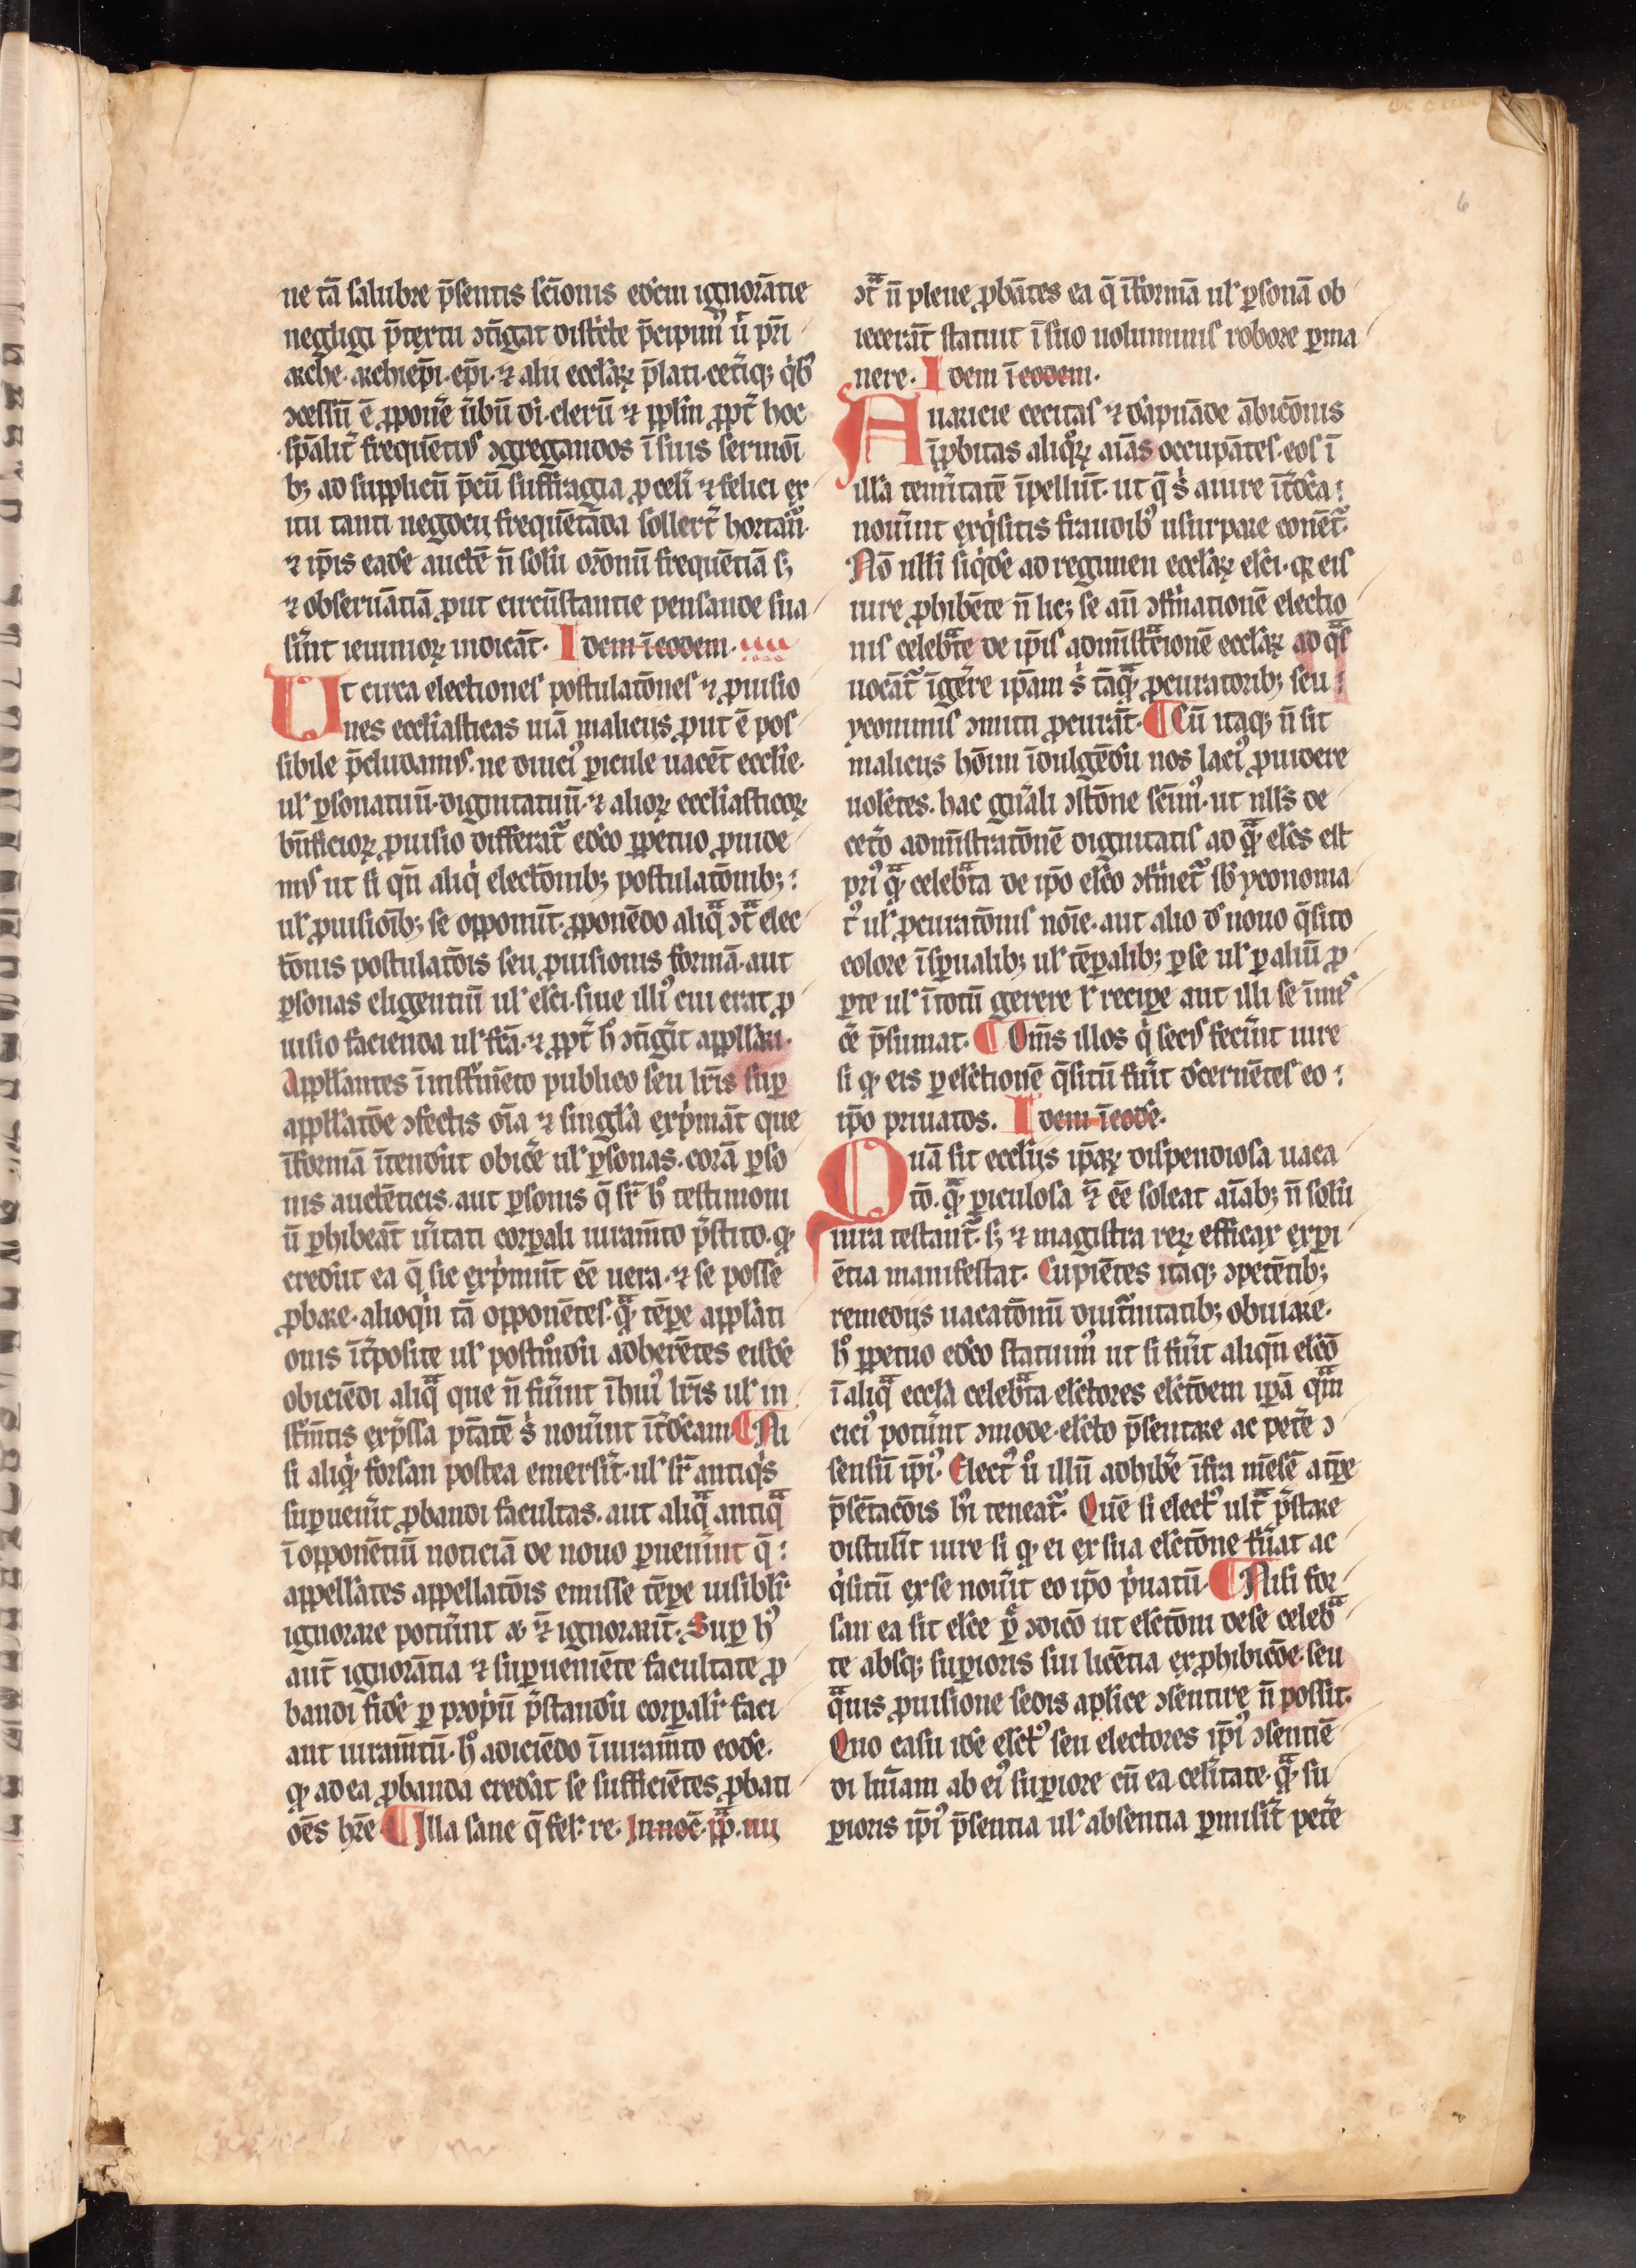 ne tā salubre p̄sentis sc̄ionis eōem ignorātie
negligi p̄textu ꝯtīgat disticte p̄cipim᷒ ū pr̄i
arche. archiep̄i. ep̄i. ⁊ alii eccl̄aꝝ p̄lati. cet̄iqꝫ q̇b᷒
ꝯcessū ē ꝓpon̄e ūbū dī. clerū ⁊ pplm̄ ꝓpt̄ hoc
sp̄alit̄ frequēti᷒ ꝯgregandos ī suis sermoī
bꝫ ad supplicū p̄cū suffragia ꝓ celī ⁊ felici ex
itu tanti negocii frequētāda sollert̄ hortāt᷑.
⁊ ip̄is eadē auctē n̄ solū or̄onū frequētiā sꝫ
⁊ obseruātiā ꝓut circūstantie pensande sua
sīnt ieiunioꝝ indicāt. Idem ī eodem. iiii
Ut circa electiones postulatōnes ⁊ ꝓuisio
nes eccl̄iasticas uiā maliciis ꝓut ē pos
sibile p̄cludam᷒. ne diuci᷒ ꝑicule uacēt eccl̄ie.
ul̄ ꝑsonatuū. dignitatuū. ⁊ alioꝝ eccl̄iasticoꝝ
bn̄ficioꝝ ꝓuisio differat᷑ edc̄o ꝑpetuo ꝓuide
m᷒ ut si qn̄ aliq̇ electōnibꝫ postulatōnibꝫ
ul̄ ꝓuisioībꝫ se opponūt. ꝓponēdo aliqᷓ ꝯtᷓ elec
tōnis postulatōis seu ꝓuisionis formā. aut
ꝑsonas eligentiū ul̄ elc̄i. siue illi᷒ cui erat ꝓ
uisio facienda ul̄ fc̄a. ⁊ ꝓpt̄ h̊ ꝯtīgīt appll̄ari.
Appll̄antes ī inst̄um̄eto publico seu lr̄is suꝑ
appll̄atōe ꝯfectis oīa ⁊ singl̄a exp̄māt que
ī formā ītendūt obic̄e ul̄ ꝑsonas. corā ꝑso
nis auctēticis. aut ꝑsonis q̄ sr̄ h̊ testimoni
ū ꝑhibeāt ūitati corꝑali iuram̄to p̄stito. ꝙ
credūt ea q̄ sic exp̄mūt eē uera. ⁊ se posse
ꝓbare. alioqn̄ tā opponētes. qᷓꝫ tēꝑe appl̄ati
onis īt̄posite ul̄ postm̊dū adherētes eisdē
obiciēdi aliqᷓ que n̄ fūint ī hui᷒ lr̄is ul̄ in
st̄m̄tis exp̄ssa ptātē s̄ nouīnt īt̄dc̄am. ¶ Ni
si aliqꝫ forsan postea emersīt. ul̄ sr̄ antiq̇s
suꝑuenīt ꝓbandi facultas. aut aliqᷓ antiqᷓ
ī opponētiū noticiā de nouo ꝑuenīnt q̄
appellātes appellatōis emisse tēꝑe uisiblr̄
ignorare potuīnt ac ⁊ ignorarūt. Suꝑ h᷒
aut̄ ignorātia ⁊ suꝑueniēte facultate ꝓ
bandi fidē ꝑ propiū p̄standū corꝑalr̄ faci
ant iuram̄tū. h̊ adiciēdo ī iuram̄to eodē.
ꝙ ad ea ꝓbanda credāt se sufficiētes ꝓbati
oēs hr̄e ¶ Illa sane q̄ fel. re. Innoc̄. pp̄. iiii
ꝯtᷓ n̄ plene ꝓbātes ea q̄ ī formā ul̄ ꝑsonā ob
iecerāt statuit ī suo uoluminis robore ꝑma
nere. Idem ī eodem.
Auaricie cecitas ⁊ dāpnāde ābicōnis
īꝓbitas aliq̊ꝝ aīas occupātes. eos ī
illā temītatē īpellūt. ut q̄ s̄ a iure īt̄dc̄a
nouīnt exq̇sitis fraudib᷒ usurpare conēt᷑.
Nō ulli siq̇dē ad regimen eccl̄aꝝ elc̄i. qꝛ eis
iure ꝓhibēte n̄ licꝫ se an̄ ꝯfīmationē electio
nis celebᷓte de ip̄is adm̄istᷓcionē eccl̄aꝝ ad qᷓs
uocāt᷑ īgēre ip̄am s̄ tāqᷓꝫ ꝓcuratoribꝫ seu
yconimis ꝯmitti ꝓcurāt. ¶ Cū itaqꝫ n̄ sit
maliciis hōīm īdulgēdū nos laci᷒ ꝓuidere
uolētes. hac gn̄ali ꝯstōne scīm᷒. ut nll̄s de
cet̄o adm̄istratōnē dignitatis ad qᷓꝫ elc̄s est
pri᷒ qᷓꝫ celebᷓta de ip̄o elc̄o ꝯfīmet᷑ sb̄ yconoma
t᷒ ul̄ ꝓcuratōnis nōīe. aut alio d̄ nouo q̄sito
colore ī spūalibꝫ ul̄ tēꝑalibꝫ ꝑ se ul̄ ꝑ aliū ꝓ
ꝑte ul̄ ī totū gerere l̄ reciꝑe aut illi se īmis
cē p̄sumat. ¶ Om̄s illos q̇ sec᷒ fecīnt iure
si ꝙ eis ꝑ elc̄tionē q̄situ fūit dc̄ernētes eo
ip̄o priuatos. Idem ī eodē.
Quā sit eccl̄iis ip̄aꝝ dispendiosa uaca
tō. qᷓꝫ ꝑiculosa ⁊ eē soleat aīabꝫ n̄ solū
iura testant᷑. sꝫ ⁊ magistra reꝝ efficax exꝑi
ētia manifestat. Cupiētes itaqꝫ ꝯpetētibꝫ
remediis uacatōnū diut̄nitatibꝫ obuiare.
h̊ ꝑpetuo edc̄o statuim᷒ ut si fūit aliqn̄ elc̄o
ī aliqᷓ eccl̄a celebᷓta. elc̄tores elc̄tōem ip̄ā qᷓm
cici᷒ potūnt ꝯmode. elc̄to p̄sentare ac pet̄e ꝯ
sensū ip̄i᷒. Elect᷒ u̇ illū adhib̄e īfra mēsē a tꝑe
p̄sētacōis h᷒i teneat᷑. Quē si elect᷒ ultᷓ p̄stare
distulīt iure si ꝙ ei ex sua elc̄tōne fūat ac
q̇situ ex se nouīt eo ip̄o p̄uatū ¶ Nisi for
san ea sit elc̄e ꝑ ꝯdicō ut elc̄tōni de se celebᷓ
te absqꝫ suꝑioris sui licētia ex ꝓhibicōe. seu
qᷓuis ꝓuisione sedis aplice ꝯsentire n̄ possit.
Quo casu idē elc̄t᷒ seu electores ip̄i᷒ ꝯsentiē
di licn̄iam ab ei᷒ suꝑiore cū ea celītate. qᷓꝫ su
ꝑioris ip̄i᷒ p̄sentia ul̄ absentia ꝑmisīt pet̄e